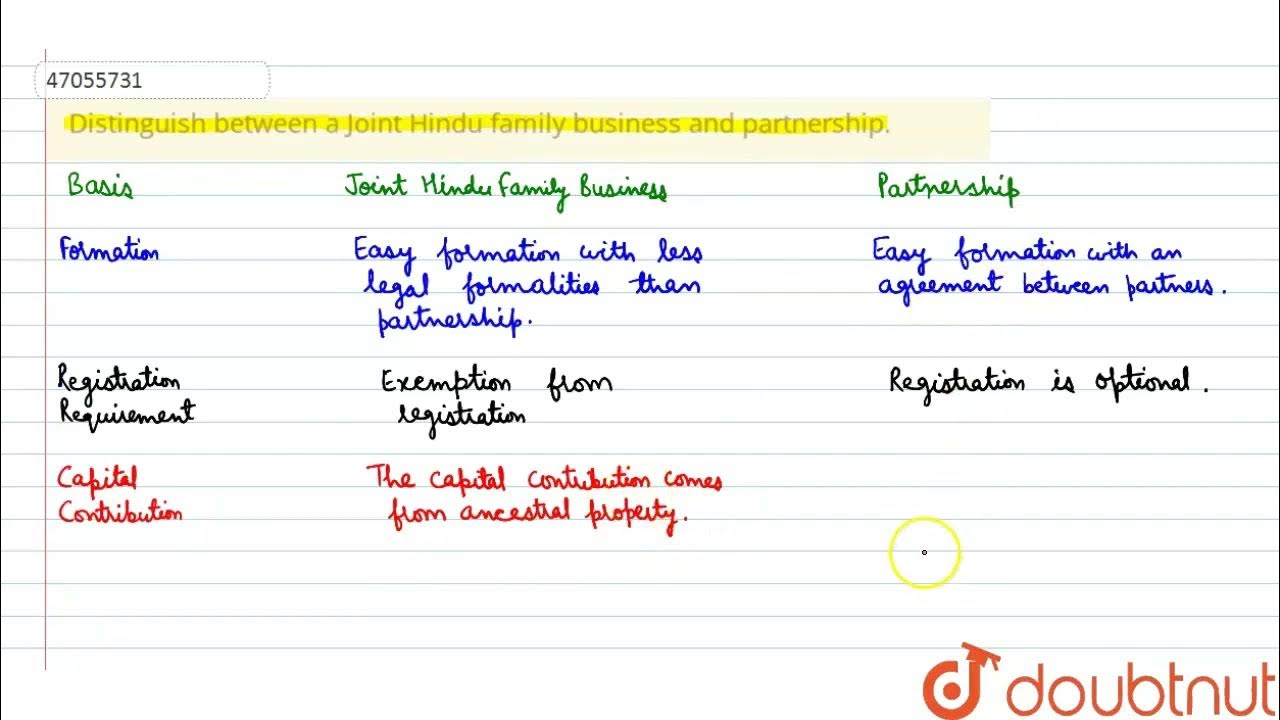 47055731
Distinguish between a Joint Hindu family business and partnership.
Basis Joint Hindu Family Business Partnership
Formation Easy formation with less Easy formation with an
legal formalities than agreement between partners.
partnership.
Registration Exemption from Registration is optional.
Requirement registration
Capital The capital contribution comes
Contribution from ancestral property.
doubtnut